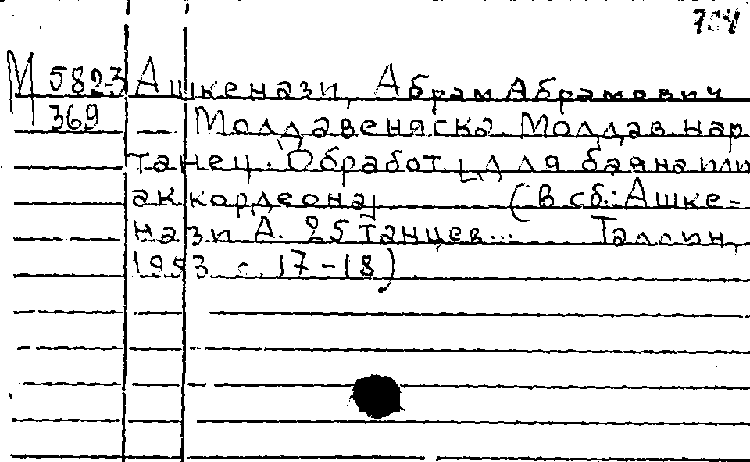 704
М 5823 Ашкенази, Абрам Абрамович
369 — Молдавеняска. Молдав нар
танец. Обработ[ ]для баяна или
аккордеона] (в сб.: Ашке-
нази А. 25 танцев... Таллин,
1953 с. 17-18)